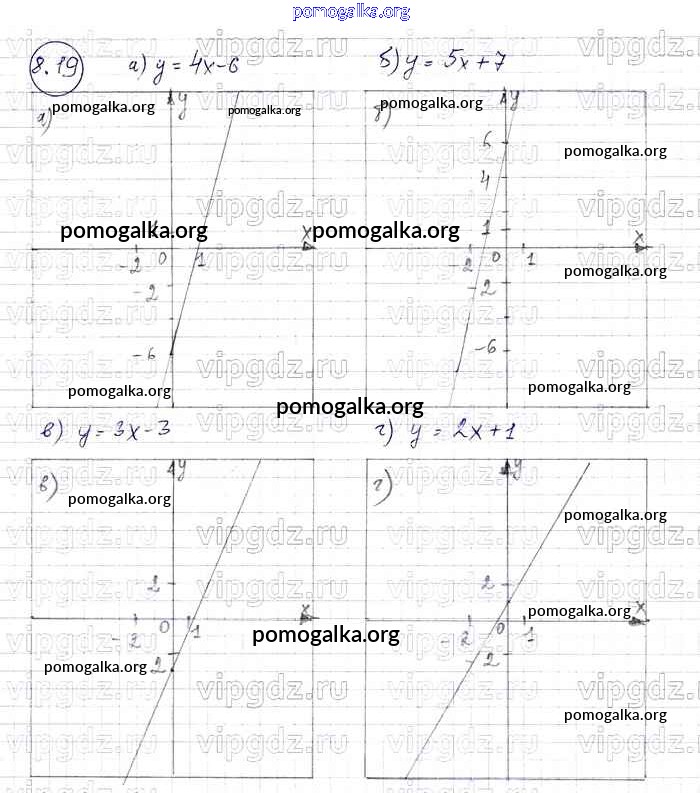 pomogalka.org
8.19 а) y = 4x-6 б) y = 5x+7
pomogalka.org y pomogalka.org pomogalka.org y
а) б)
6 pomogalka.org
4
pomogalka.org x pomogalka.org 1 x
-2 0 1 -2 0 1 pomogalka.org
-2 -2
-6 -6
pomogalka.org pomogalka.org
pomogalka.org
в) y = 3x-3 г) y = 2x+1
y y
в) г)
pomogalka.org pomogalka.org
2 2
x pomogalka.org x
-2 0 1 pomogalka.org -2 0 1
pomogalka.org 2 -2
pomogalka.org
vipgdz.ru vipgdz.ru vipgdz.ru